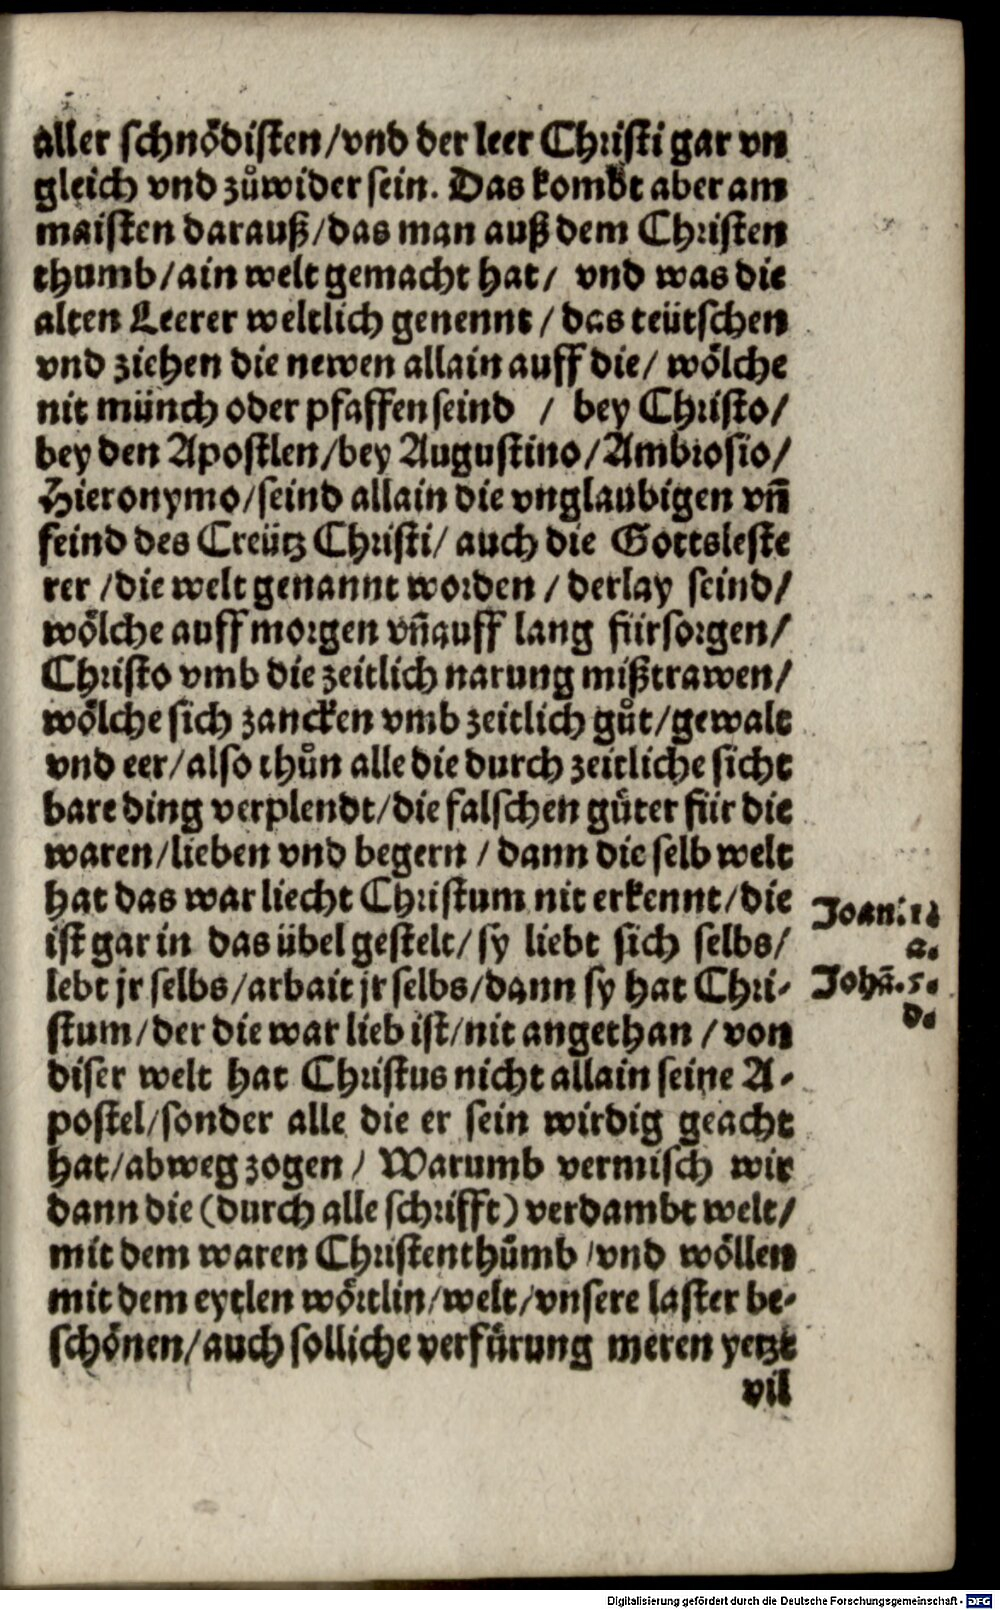 aller schnödisten/vnd der leer Christi gar vn
gleich vnd zůwider sein. Das kombt aber am
maisten darauß/das man auß dem Christen
thumb/ain welt gemacht hat/ vnd was die
alten Leerer weltlich genennt/das teütschen
vnd ziehen die newen allain auff die/ wölche
nit münch oder pfaffen seind / bey Christo/
bey den Apostlen/bey Augustino/Ambrosio/
Hieronymo/seind allain die vnglaubigen vñ
feind des Creütz Christi/ auch die Gottsleste
rer /die welt genannt worden / derlay seind/
wölche auff morgen vñ auff lang fürsorgen/
Christo vmb die zeitlich narung mißtrawen/
wölche sich zancken vmb zeitlich gůt/gewalt
vnd eer/also thůn alle die durch zeitliche sicht
bare ding verplendt/die falschen güter für die
waren/lieben vnd begern / dann die selb welt
hat das war liecht Christum nit erkennt/die
ist gar in das übel gestelt/ sy liebt sich selbs/
lebt jr selbs/arbait jr selbs/dann sy hat Chri-
stum/der die war lieb ist/nit angethan / von
diser welt hat Christus nicht allain seine A-
postel/sonder alle die er sein wirdig geacht
hat/abweg zogen / Warumb vermisch wir
dann die (durch alle schrifft) verdambt welt/
mit dem waren Christenthůmb /vnd wöllen
mit dem eytlen wörtlin/welt/vnsere laster be-
schönen/auch solliche verfůrung meren yetzt
vil
Joan. 1.
a.
Johã. 5.
d.
Digitalisierung gefördert durch die Deutsche Forschungsgemeinschaft - DFG